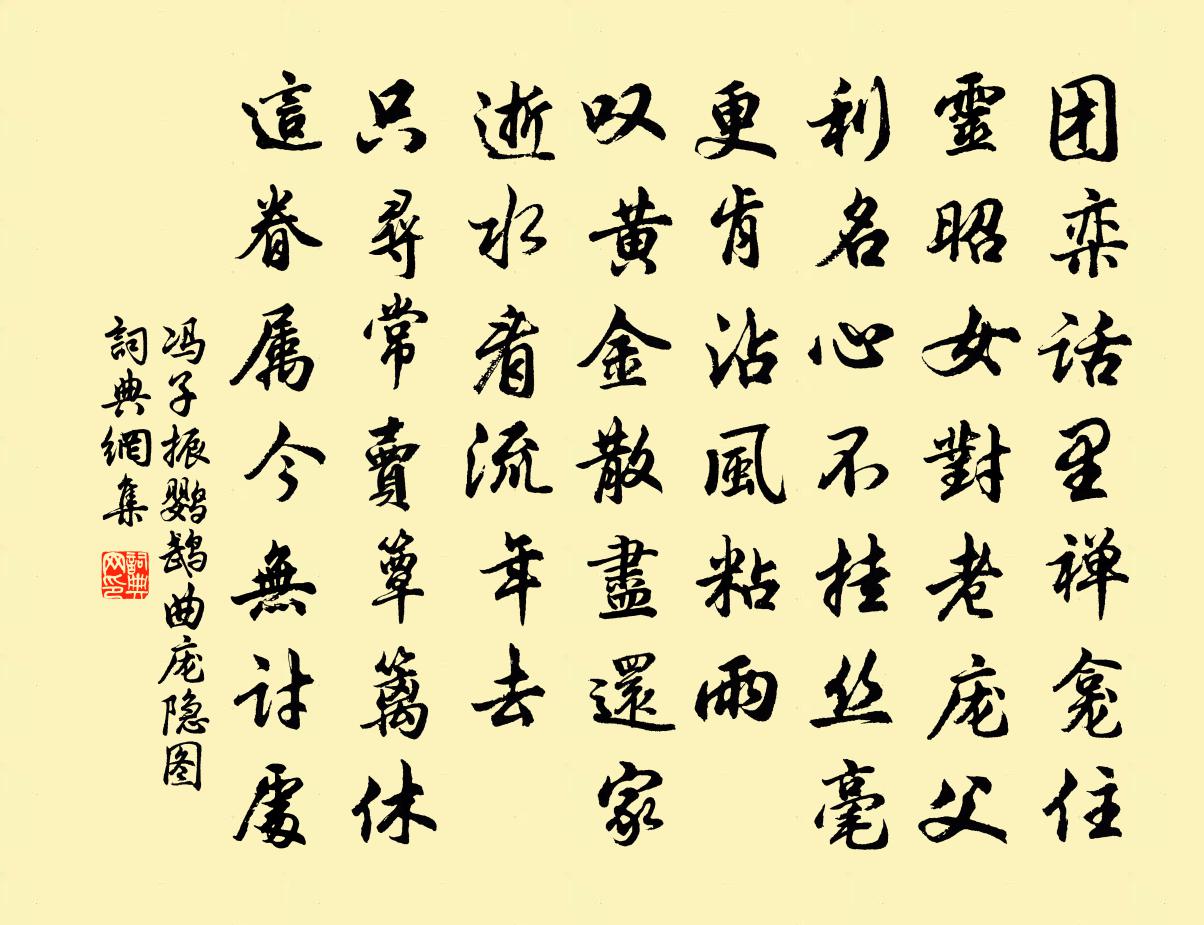 团栾话里禅龛住
靈昭女對老庞父
利名心不挂丝毫
更肯沾風粘雨
叹黄金散盡還家
逝水看流年去
只尋常賣簟篱休
這眷属今無討處
冯子振鹦鹉曲庞隐图
詞典網集
詞典网印